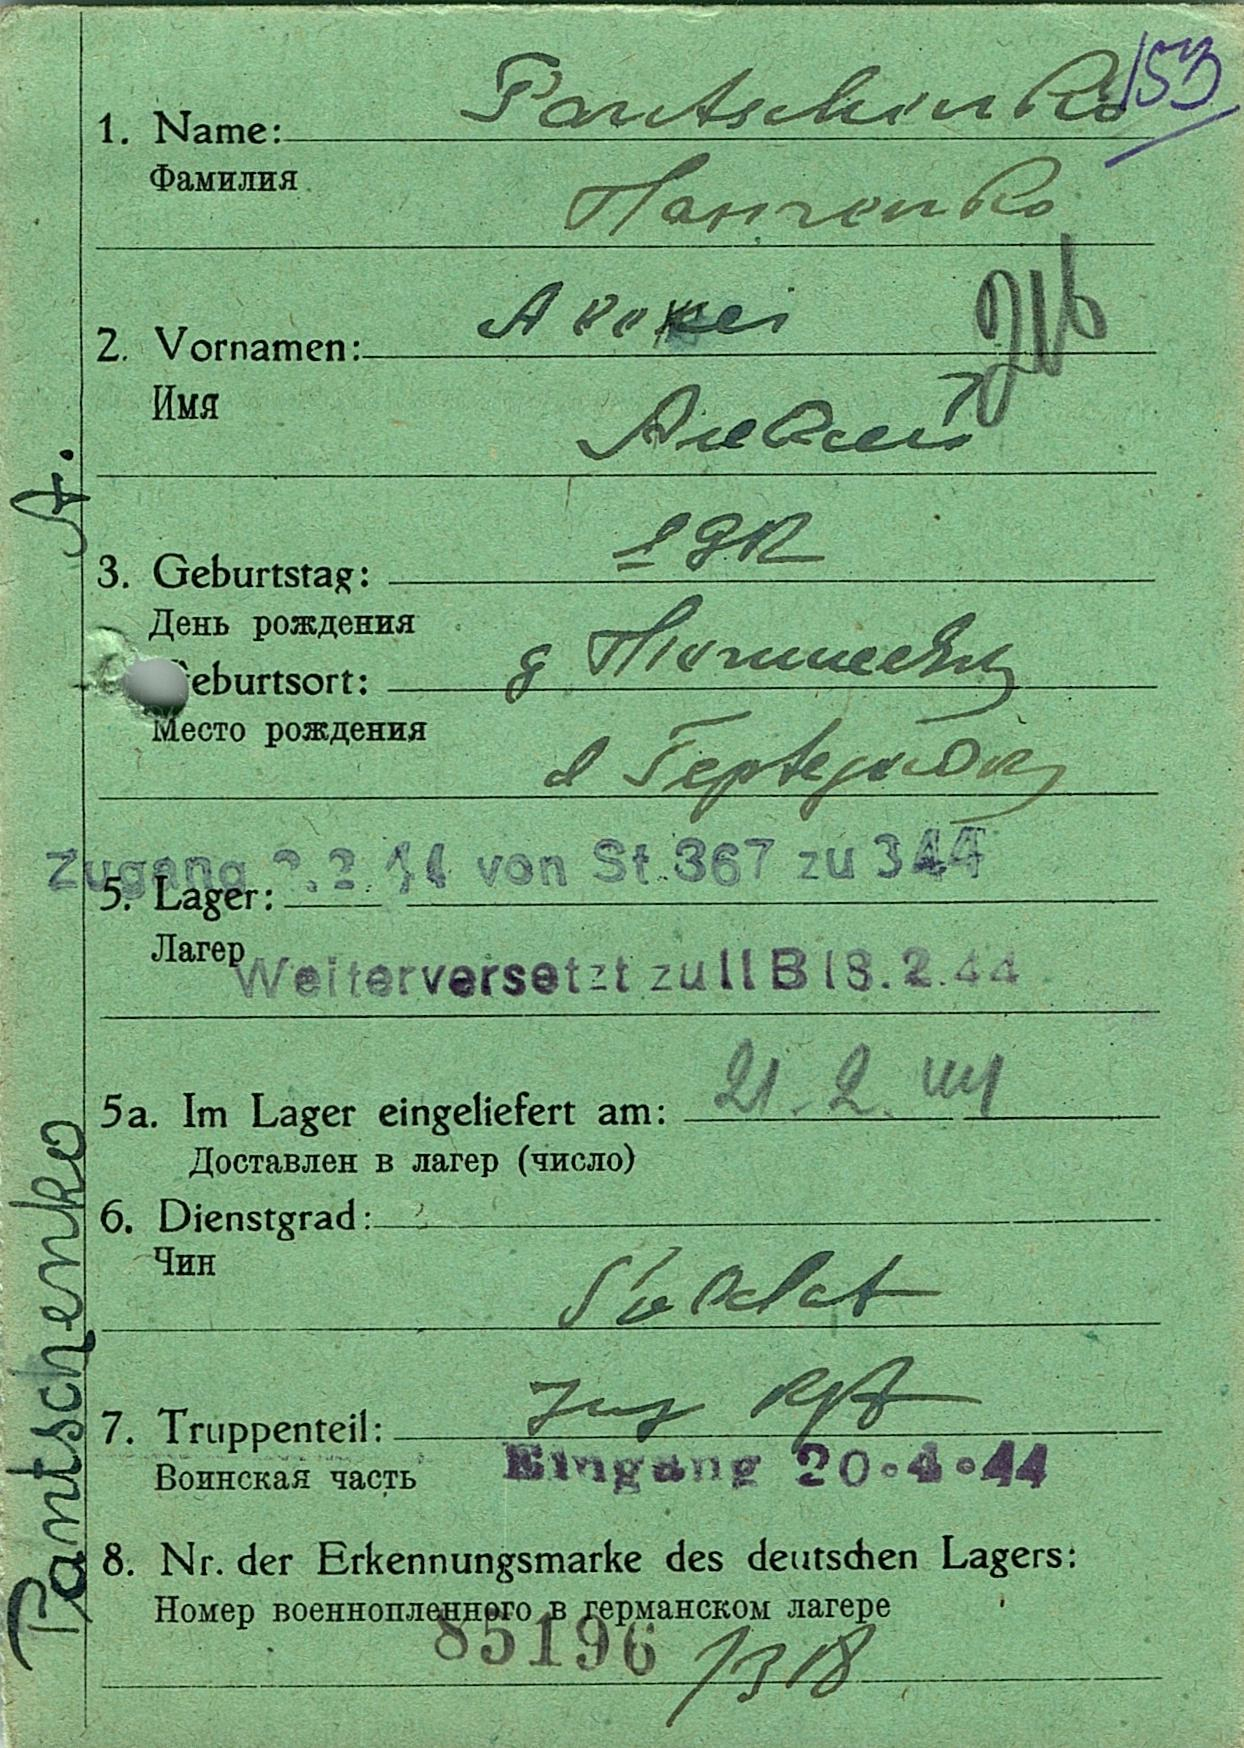 153
1. Name: Pantschenko
Фамилия
Панченко
216
2. Vornamen:
Имя
Алексей
A.
3. Geburtstag:
День рождения
Geburtsort: д
Место рождения
Zugang 2.2 44 von St. 367 zu 344
5. Lager:
Лагер
Weiterversetzt zu II B 18.2.44
5a. Im Lager eingeliefert am: 21.2.44
Доставлен в лагер (число)
6. Dienstgrad:
Чин
Soldat
7. Truppenteil:
Воинская часть
Eingang 20.4.44
8. Nr. der Erkennungsmarke des deutschen Lagers:
Номер военнопленного в германском лагере
85196 /318
Pantschenko